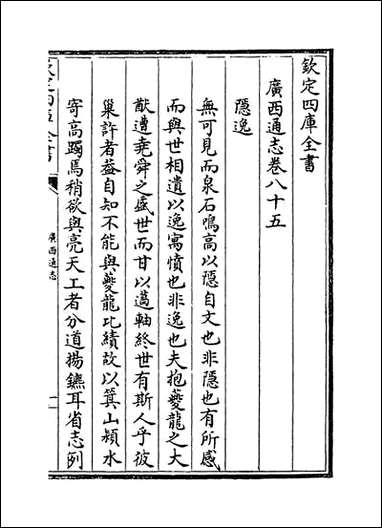 欽定四庫全書
廣西通志卷八十五
隱逸
無可見而泉石鳴高以隱自文也非隱也有所感
而與世相遺以逸寓憤也非逸也夫抱夔龍之大
猷遭堯舜之盛世而甘以薖軸終世有斯人乎彼
巢許者蓋自知不能與夔龍比績故以箕山潁水
寄高躅焉稍欲與亮天工者分道揚鑣耳省志列
欽定四庫全書
廣西通志
一